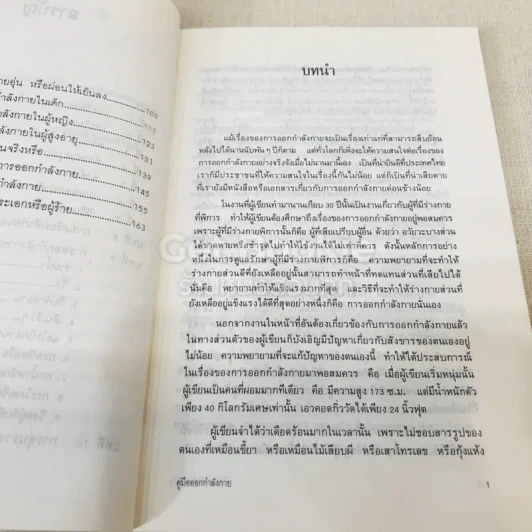 สารบัญ
ายอุ่น หรือผ่อนให้เย็นลง
109
กำลังกายในเด็ก
115
กำลังกายในผู้หญิง
123
กำลังกายในผู้สูงอายุ
131
นจริงหรือ
139
การออกกำลังกาย
145
กำลังกาย
155
ระเอกหรือผู้ร้าย
163
บทนำ
แม้เรื่องของการออกกำลังกายจะเป็นเรื่องเก่าแก่ที่สามารถสืบย้อน
หลังไปได้นานนับพัน ๆ ปีก็ตาม แต่ทั่วโลกก็เพิ่งจะให้ความสนใจต่อเรื่องของ
การออกกำลังกายอย่างจริงจังเมื่อไม่นานมานี้เอง เป็นที่น่ายินดีที่ประเทศไทย
เราก็มีประชาชนที่ให้ความสนใจในเรื่องนี้กันไม่น้อย แต่ก็เป็นที่น่าเสียดาย
ที่เรายังมีหนังสือหรือเอกสารเกี่ยวกับการออกกำลังกายค่อนข้างน้อย
ในงานที่ผู้เขียนทำมานานเกือบ 30 ปีนั้นเป็นงานเกี่ยวกับผู้ที่มีร่างกาย
ที่พิการ ทำให้ผู้เขียนต้องศึกษาถึงเรื่องของการออกกำลังกายอยู่พอสมควร
เพราะผู้ที่มีร่างกายพิการนั้นก็คือ ผู้ที่เสียเปรียบผู้อื่น ด้วยว่า อวัยวะบางส่วน
ได้ขาดหายหรือชำรุดไปทำให้ใช้งานได้ไม่เท่าที่ควร ดังนั้นหลักการอย่าง
หนึ่งในการดูแลรักษาผู้ที่มีร่างกายพิการก็คือ ความพยายามที่จะทำให้
ร่างกายส่วนดีที่ยังเหลืออยู่นั้นสามารถทำหน้าที่ทดแทนส่วนที่เสียไปได้
นั่นคือ พยายามทำให้แข็งแรงมากที่สุด และวิธีที่จะทำให้ร่างกายส่วนที่
ยังเหลืออยู่แข็งแรงได้ดีที่สุดอย่างหนึ่งก็คือ การออกกำลังกายนั่นเอง
นอกจากงานในหน้าที่อันต้องเกี่ยวข้องกับการออกกำลังกายแล้ว
ในทางส่วนตัวของผู้เขียนก็บังเอิญมีปัญหาเกี่ยวกับสังขารของตนเองอยู่
ไม่น้อย ความพยายามที่จะแก้ปัญหาของตนเองนี้ ทำให้ได้ประสบการณ์
ในเรื่องของการออกกำลังกายมาพอสมควร คือ เมื่อผู้เขียนเริ่มหนุ่มนั้น
ผู้เขียนเป็นคนที่ผอมมากทีเดียว คือ มีความสูง 173 ซ.ม. แต่มีน้ำหนักตัว
เพียง 40 กิโลกรัมเศษเท่านั้น เอวคอดกิ่ววัดได้เพียง 24 นิ้วฟุต
ผู้เขียนจำได้ว่าเดือดร้อนมากในเวลานั้น เพราะไม่ชอบสารรูปของ
ตนเองที่เหมือนขี้ยา หรือเหมือนไม้เสียบผี หรือเสาโทรเลข หรือกุ้งแห้ง
คู่มือออกกำลังกาย
1